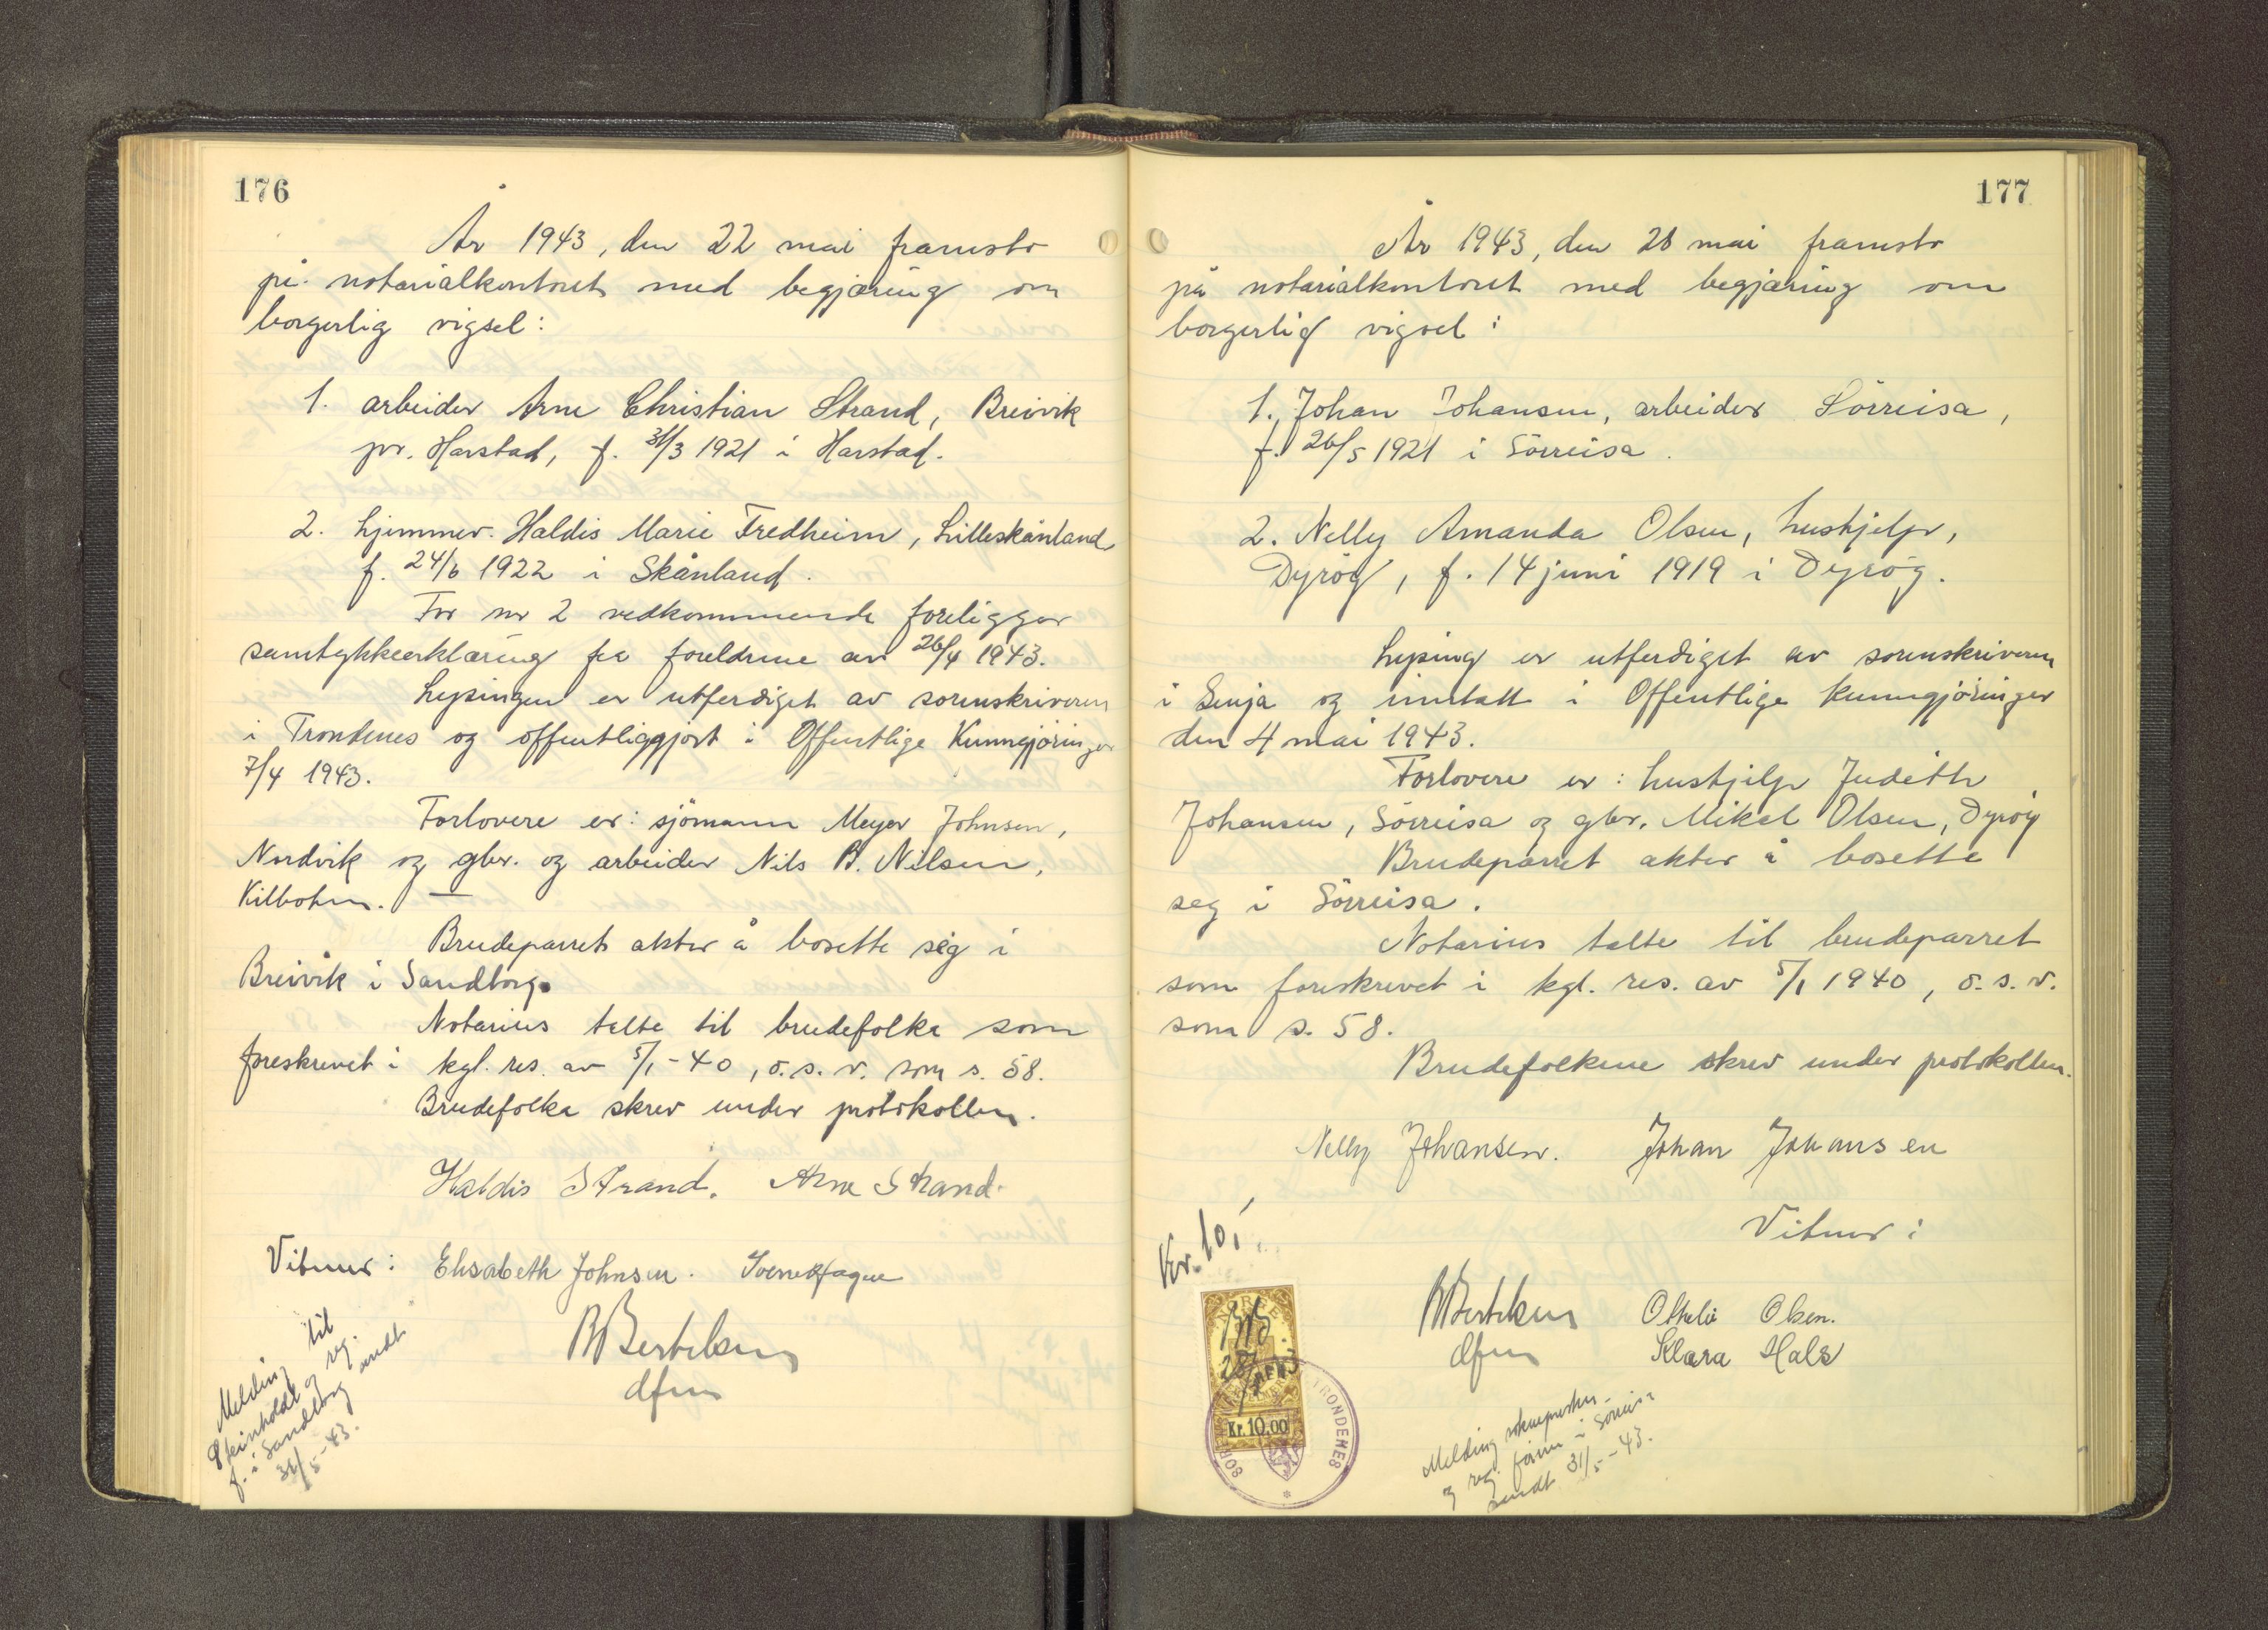 176
År 1943, den 22 mai framsto
på notarialkontoret med begjæring om
borgerlig vigsel:
1. arbeider Arne Christian Strand, Breivik
pr. Harstad, f. 31/3 1921 i Harstad.
2. hjemmev. Haldis Marie Fredheim, Lilleskånland
f. 24/6 1922 i Skånland.
For nr 2 vedkommende foreligger
samtykkeerklæring fra foreldrene av 26/4 1943.
Lysingen er utferdiget av sorenskriveren
i Trondenes og offentliggjort i Offentlige Kunngjøringer
7/4 1943.
Forlovere er: sjömann Meyer Johnsen,
Nordvik og gbr. og arbeider Nils B. Nilsen,
Kilbotn. —
Brudeparret akter å bosette seg i
Breivik i Sandtorg.
Notarius talte til brudefolka som
foreskrevet i kgl. res. av 5/1-40, o.s.v. som s. 58.
Brudefolka skrev under protokollen.
Haldis Strand. Arne Strand.
Vitner: Elisabeth Johnsen.
B Bertelsen
dfm
Melding til
og reg.
f. i Sandtorg sendt
31/5-43.
177
År 1943, den 28 mai framsto
på notarialkontoret med begjæring om
borgerlig vigsel:
1. Johan Johansen, arbeider Sörreisa,
f. 26/5 1921 i Sörreisa.
2. Nelly Amanda Olsen, hushjelp,
Dyröy, f. 14 juni 1919 i Dyröy.
Lysing er utferdiget av sorenskriveren
i Senja og inntatt i Offentlige Kunngjöringer
den 4 mai 1943.
Forlovere er: hushjelp Judeith
Johansen, Sörreisa og gbr. Mikal Olsen, Dyröy
Brudeparret akter å bosette
seg i Sörreisa.
Notarius talte til brudeparret
som foreskrevet i kgl. res. av 5/1 1940, o.s.v.
som s. 58.
Brudefolkene skrev under protokollen.
Nelly Johansen. Johan Johansen
Vitner:
Kr. 10,-
B Bertelsen Olsen.
dfm Klara Hals
NORGE
28/5
Kr. 10.00
TRONDENES
Melding
og reg. i Sörreisa
sendt 31/5-43.